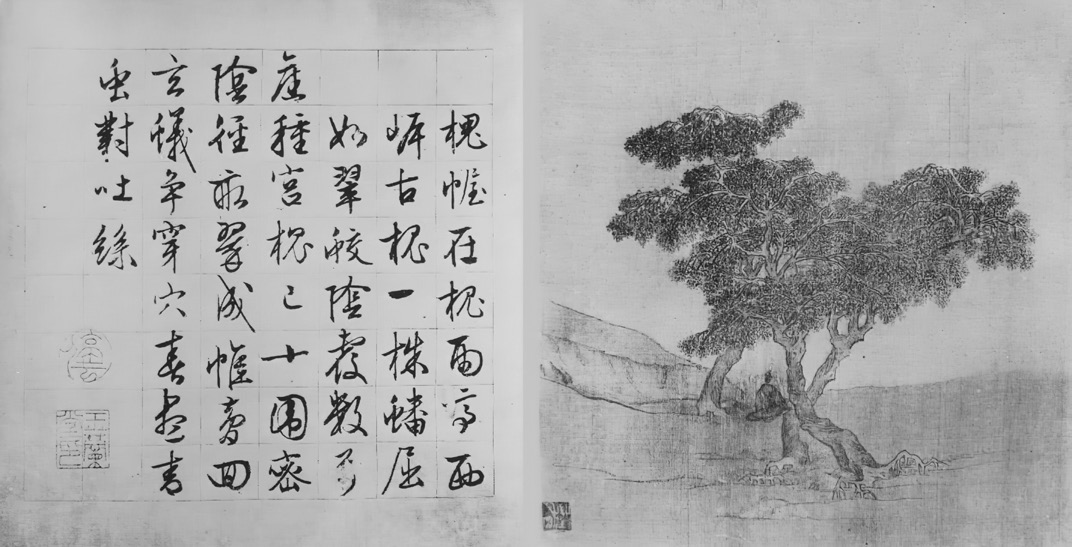 槐幄在槐雨亭西
岸古槐一株蟠屈
如翠蛟陰覆數弓
種宮槐已十圍密
陰徑畝翠成帷夢回
玄蟻爭穿穴春盡青
虫對吐絲
停雲